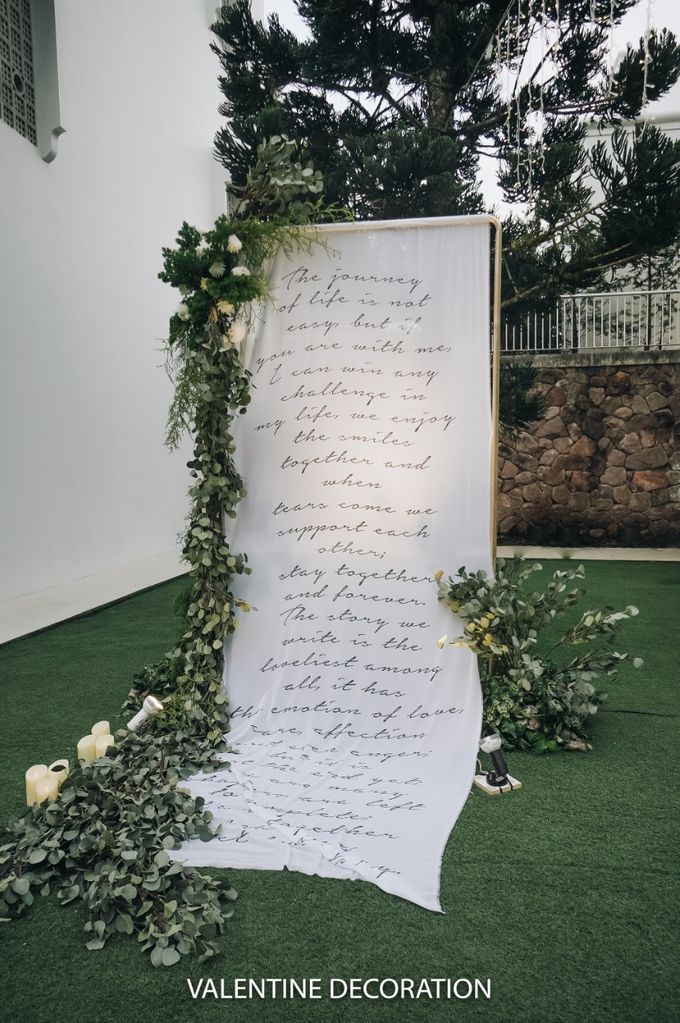 The journey
of life is not
easy, but if
you are with me,
I can win any
challenge in
my life, we enjoy
the smiles
together and
when
tears come we
support each
other;
stay together
and forever.
The story we
write is the
loveliest among
all, it has
the emotion of love,
care, affection
and even anger;
and yet
are many
are left
together
VALENTINE DECORATION